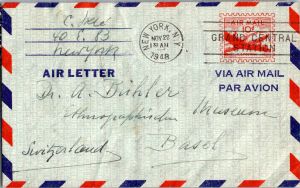 40 E. 83
New York
NEW YORK, N.Y.
NOV 22
1948
AIR MAIL
10¢
GRAND CENTRAL
STATION
AIR LETTER
VIA AIR MAIL
PAR AVION
Dr. A. Bühler
Museum
Basel
Switzerland